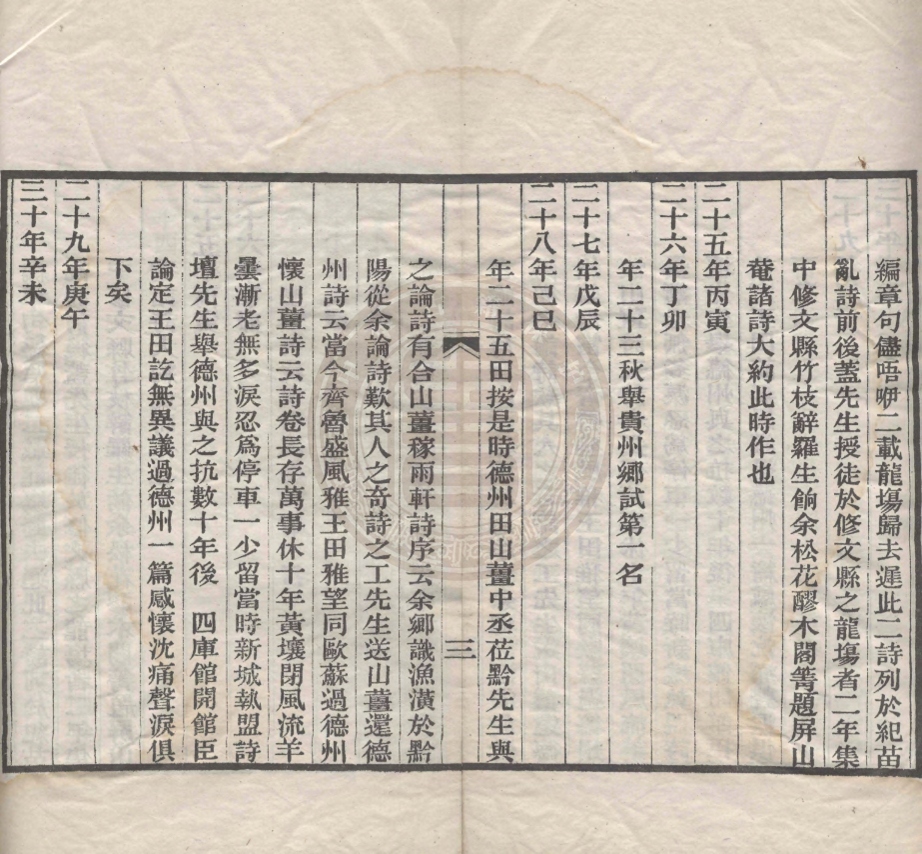 編章句儘唔咿二載龍塲歸去遲此二詩列於紀苗
亂詩前後蓋先生授徒於修文縣之龍塲者二年集
中修文縣竹枝辭羅生餉余松花醪木閣箐題屏山
菴諸詩大約此時作也
二十五年丙寅
二十六年丁卯
年二十三秋舉貴州鄉試第一名
二十七年戊辰
二十八年己巳
年二十五田按是時德州田山薑中丞莅黔先生與
三
之論詩有合山薑稼雨軒詩序云余鄉識漁潢於黔
陽從余論詩歎其人之奇詩之工先生送山薑還德
州詩云當今齊魯盛風雅王田雅望同歐蘇過德州
懷山薑詩云詩卷長存萬事休十年黃壤閉風流羊
曇漸老無多淚忍爲停車一少留當時新城執盟詩
壇先生舉德州與之抗數十年後 四庫館開館臣
論定王田訖無異議過德州一篇感懷沈痛聲淚俱
下矣
二十九年庚午
三十年辛未